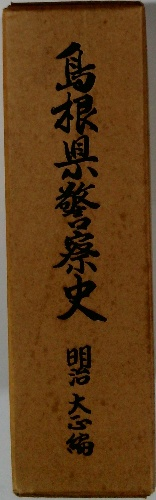 島根県警察史
明治大正編